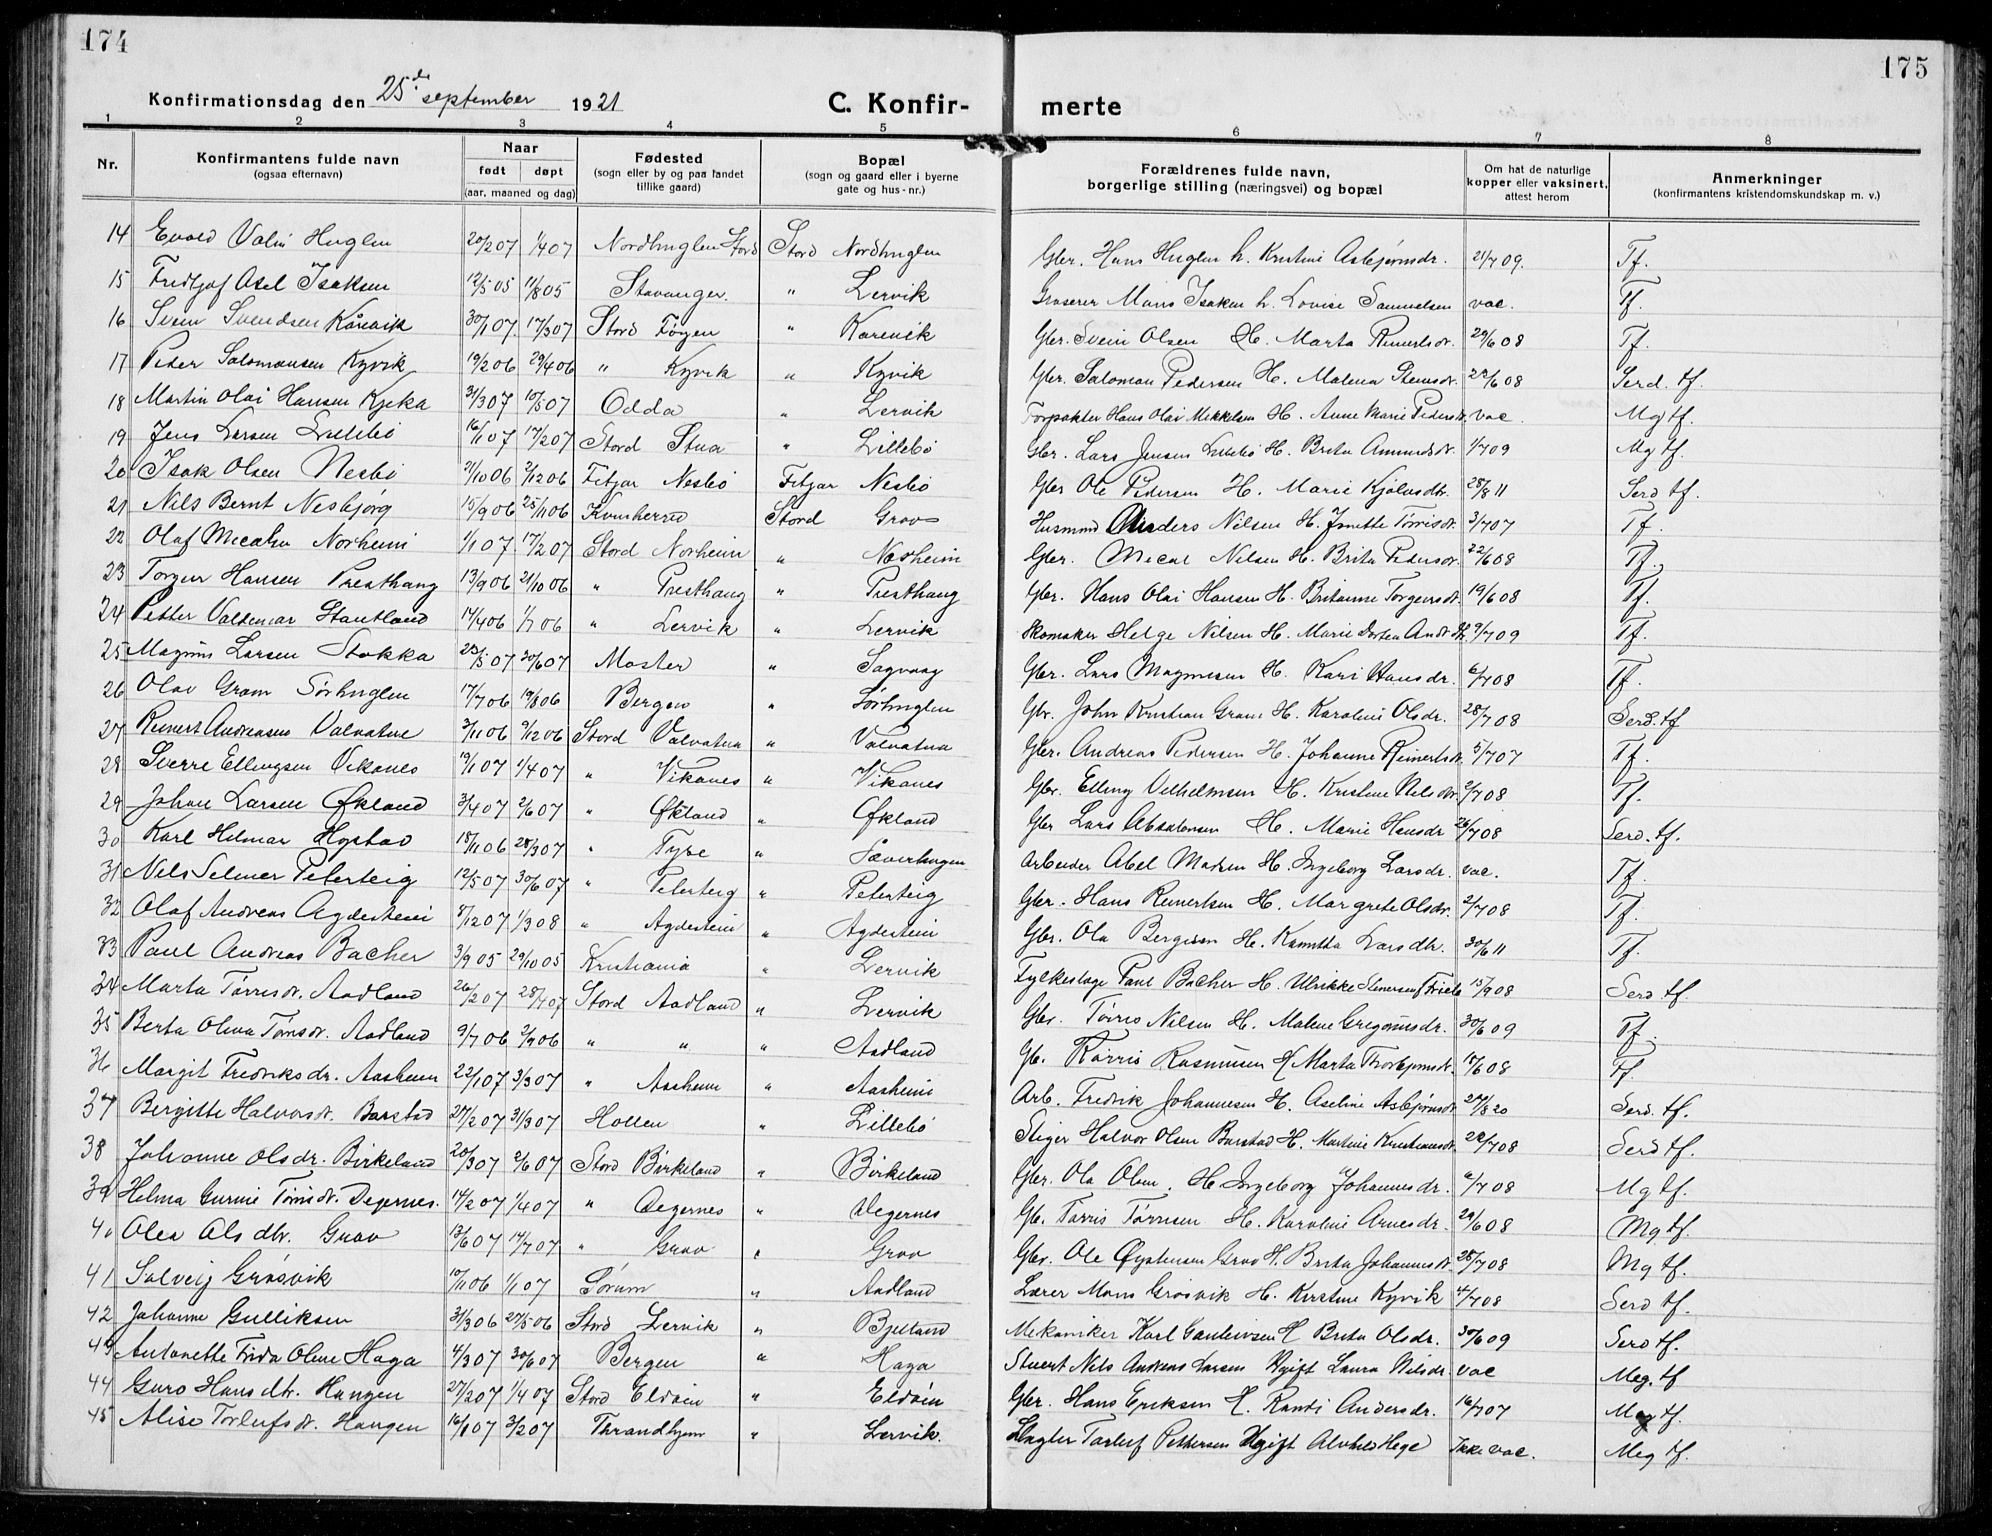 174
175
Konfirmationsdag den 25de september 1921
C. Konfir- merte
1 2 3 4 5 6 7 8
Nr.
Konfirmantens fulde navn
(ogsaa efternavn)
Naar
født døpt
(aar, maaned og dag)
Fødested
(sogn eller by og paa landet
tillike gaard)
Bopæl
(sogn og gaard eller i byerne
gate og hus-nr.)
Forældrenes fulde navn,
borgerlige stilling (næringsvei) og bopæl
Om hat de naturlige
kopper eller vaksinert,
attest herom
Anmerkninger
(konfirmantens kristendomskundskap m. v.)
14 Evald Valin Huglen 20/2 07 1/4 07 Nordhuglen Stord Stord Nordhuglen Gbr. Hans Huglen h. Kristine Asbjørnsdr. 21/7 09. Tf.
15 Fredtjof Axel Isaksen 12/5 05 11/8 05 Stavanger. " Lervik Groserer Mons Isaksen h. Lovise Samuelsen vac. Tf.
16 Svein Svendsen Kårevik 30/1 07. 17/3 07 Stord Førgen " Karevik Gbr. Svein Olsen H. Marta Reinertsdr. 29/6 08 Tf.
17 Peder Salomonsen Kyvik 19/2 06 29/4 06 " Kyvik " Kyvik Gbr. Saloman Pedersen H. Malena Stensdr. 22/6 08 Serd. tf.
18 Martin Olai Hansen Kjeka 31/3 07 10/5 07 Odda " Lervik Forpakter Hans Olai Mikkelsen H. Anne Marie Pedersdr. vac. Mg tf.
19 Jens Larsen Lillebö 16/1 07 17/2 07 Stord Stua " Lillebö Gbr. Lars Jensen Lillebö H. Brita Amundsdr. 1/7 09 Mg tf.
20 Isak Olsen Nesbö 21/10 06 2/12 06 Fitjar Nesbö Fitjar Nesbö Gbr Ole Pedersen H. Marie Kjölvsdtr. 28/8 11 Serd tf.
21 Nils Bernt Nesbjörg 15/9 06 25/11 06 Kvinherred Stord Grov Husmand Anders Nilsen H. Jonette Tórrisdr. 3/7 07 Tf.
22 Olaf Mecalsen Norheim 1/1 07 17/2 07 Stord Norheim " Norheim Gbr. Mecal Nilsen H. Brita Pedersdr. 22/6 08 Tf.
23 Torger Hansen Presthaug 13/9 06 21/10 06 " Presthaug " Presthaug Gbr. Hans Olai Hansen H. Britanne Torgersdr. 19/6 08 Tf.
24 Petter Valdemar Stautland 17/4 06 1/7 06 " Lervik " Lervik Skomaker Helge Nilsen H. Marie Dortea Andr. 9/7 09 Tf.
25 Magnus Larsen Stokka 23/5 07 30/6 07 Moster " Sagvaag Gbr. Lars Magnesen H. Kari Hansdr. 6/7 08 Tf.
26 Olav Gram Sörhuglen 17/7 06 19/8 06 Bergen " Sörhuglen Gbr. John Kristian Gram H. Karoline Olsdr. 28/7 08 Serd. tf
27 Reinert Andreasen Valvatne 3/11 06 2/12 06 Stord Valvatna " Valvatna Gbr. Andreas Pedersen H. Johanne Reinertsdr. 5/7 07 Tf.
28 Sverre Ellingsen Vikanes 19/1 07 1/4 07 " Vikanes " Vikanes Gbr. Elling Vilhelmsen H. Kristine Nilsdr. 2/7 08 Tf.
29 Johan Larsen Økland 3/4 07 2/6 07 " Økland " Økland Gbr Lars Absalonsen H. Marie Hansdr 26/7 08 Serd. tf.
30 Karl Hilmar Hystad 18/11 06 28/3 07 " Tyse " Sæverhagen Arbeider Abel Madsen H. Ingeborg Larsdr. vac. Tf.
31 Nils Selmer Peterteig 12/5 07 30/6 07 " Peterteig " Peterteig Gbr. Hans Reinertsen H. Margrete Olsdr. 2/7 08 Tf.
32 Olaf Andreas Agdestein 8/12 07 1/3 08 " Agdestein " Agdestein Gbr. Ola Bergesen H. Kanutta Larsdtr. 30/6 11 Tf.
33 Paul Andreas Bacher 3/9 05 29/10 05 Kristiania " Lervik Fylkeslæge Paul Bacher H. Ulrikke Stenersen Friele 15/9 08 Serd tf.
34 Marta Tórresdr. Aadland 26/2 07 28/7 07 Stord Aadland " Lervik Gbr. Tórris Nilsen H. Malene Gregoriusdr. 30/6 09 Tf.
35 Berta Oliva Tórrisdr. Aadland 9/7 06 2/9 06 " " " Aadland Gb. Tórris Rasmussen H Marta Thorbjørnsdr. 18/6 08 Tf.
36 Margit Fredriksdr. Aasheim 22/1 07 3/3 07 " Aasheim " Aasheim Arb. Fredrik Johannesen H. Aseline Asbjørnsdr. 27/8 20 Serd. tf.
37 Bergitte Halvorsdr. Barstad 27/2 07 31/3 07 Hollen " Lillebö Stiger Halvor Olsen Barstad H. Martine Kristiansdr. 22/7 08 Serd tf.
38 Johanne Olsdr. Birkeland 20/3 07 2/6 07 Stord Birkeland " Birkeland Gbr. Ola Olsen. H. Ingeborg Johannesdr. 6/7 08 Mg tf.
39 Helma Gurine Tórrisdr. Degernes. 14/2 07 1/4 07 " Degernes " Degernes Gb. Tórris Tórrisen H. Karoline Arnesdr. 29/6 08 Mg tf.
40 Olea Olsdtr. Grov 13/6 07 14/7 07 " Grov " Grov Gbr. Ole Øystensen Grov H. Brita Johannesdr. 28/7 08 Mg tf.
41 Solveig Grósvik 10/11 06 1/1 07 Sörum " Aadland Lærer Mons Grósvik H. Kirstine Kyvik 4/7 08 Serd tf.
42 Johanne Gulliksen 31/3 06 27/5 06 Stord Lervik " Bjelland Mekaniker Karl Gauteivsen H Brita Olsdr. 30/6 09 Serd tf.
43 Antonette Frida Oline Haga 4/3 07 30/6 07 Bergen " Haga Stuert Nils Andreas Larsen Ugift Laura Nilsdr. vac Meg. tf
44 Guro Hansdtr. Haugen 27/2 07 1/4 07 Stord Eldöin " Eldöin Gbr. Hans Eriksen H. Randi Andersdr. 16/7 07 Meg tf.
45 Alise Torlufsdr. Haugen 16/1 07 3/2 07 Thrandhjem " Lervik. Torluf Pettersen Ugift Alvhild Hege Ikke vac. Meg tf.